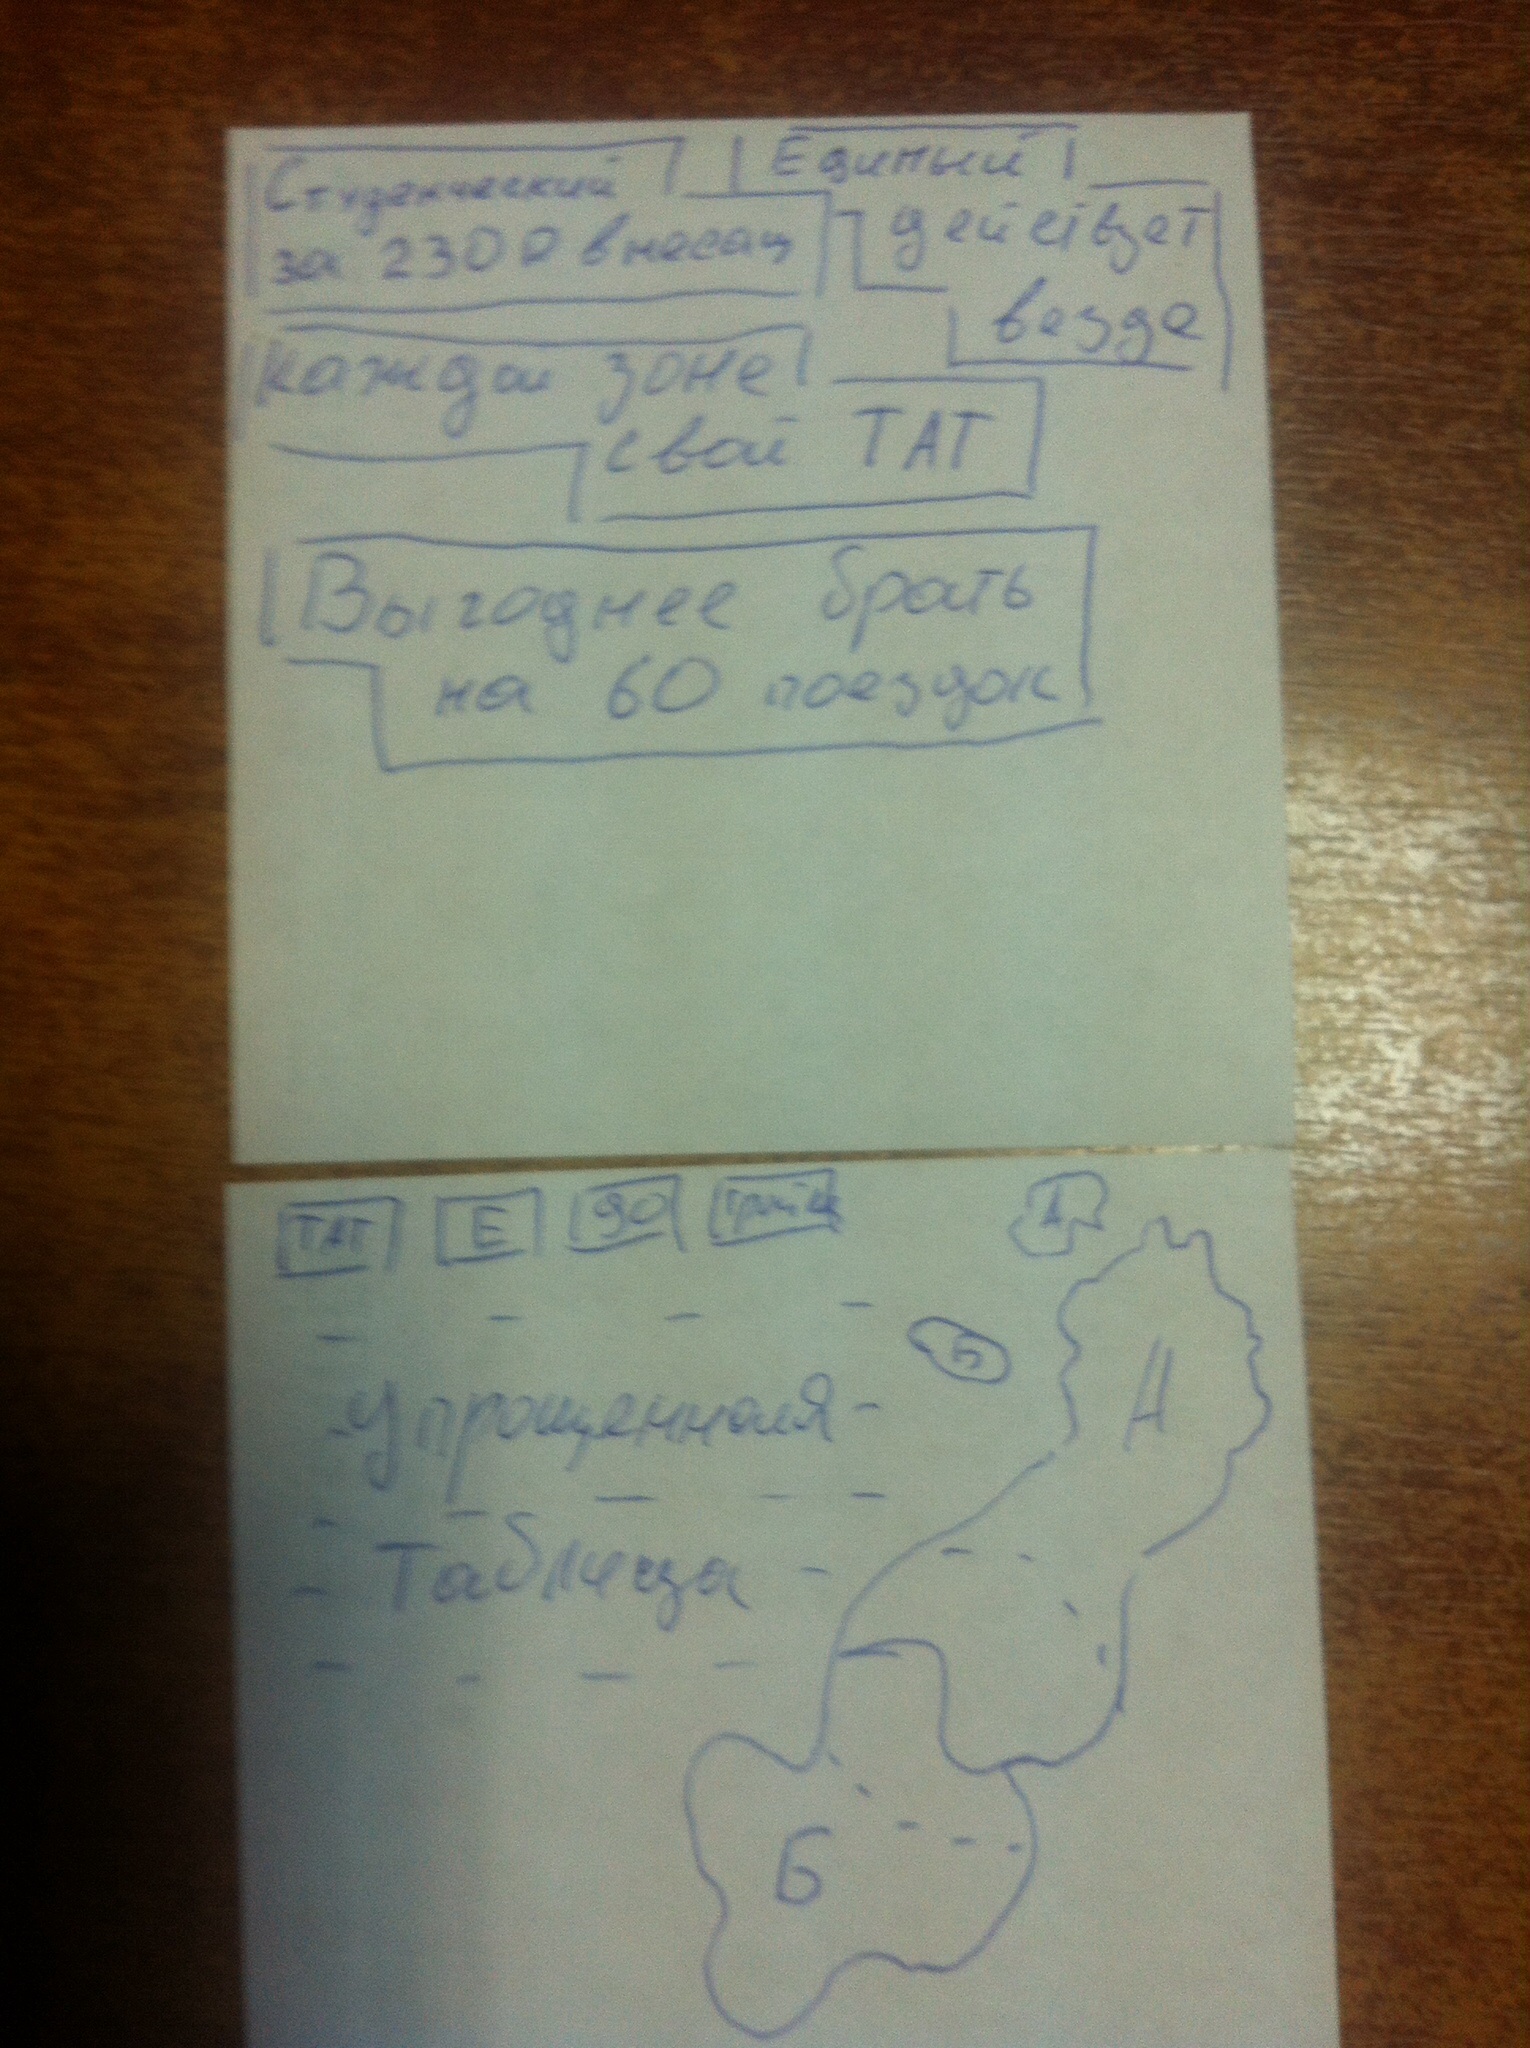 Студенческий
за 230₽ в месяц
Единый
действует
везде
каждой зоне
свой ТАТ
Выгоднее брать
на 60 поездок
ТАТ Е 90 тройка
А
Б
А
Упрощенная
таблица
Б